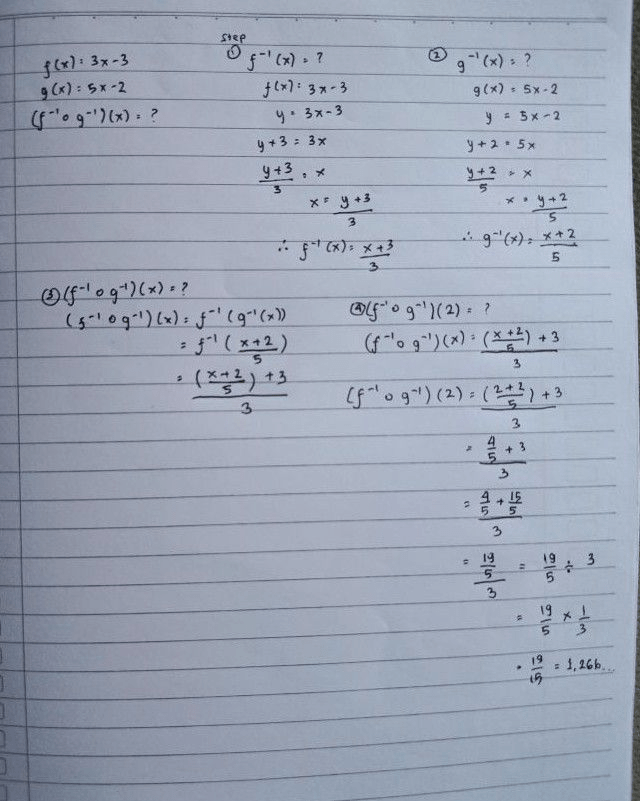 f(x) = 3x - 3
g(x) = 5x - 2
(f⁻¹ o g⁻¹)(x) = ?
step
① f⁻¹(x) = ?
f(x) = 3x - 3
y = 3x - 3
y + 3 = 3x
(y+3)/3 = x
x = (y+3)/3
∴ f⁻¹(x) = (x+3)/3
② g⁻¹(x) = ?
g(x) = 5x - 2
y = 5x - 2
y + 2 = 5x
(y+2)/5 = x
x = (y+2)/5
∴ g⁻¹(x) = (x+2)/5
③ (f⁻¹ o g⁻¹)(x) = ?
(f⁻¹ o g⁻¹)(x) = f⁻¹(g⁻¹(x))
= f⁻¹((x+2)/5)
= (((x+2)/5) + 3)/3
④ (f⁻¹ o g⁻¹)(2) = ?
(f⁻¹ o g⁻¹)(x) = (((x+2)/5) + 3)/3
(f⁻¹ o g⁻¹)(2) = (((2+2)/5) + 3)/3
= (4/5 + 3)/3
= (4/5 + 15/5)/3
= (19/5)/3 = 19/5 ÷ 3
= 19/5 × 1/3
= 19/15 = 1,266...